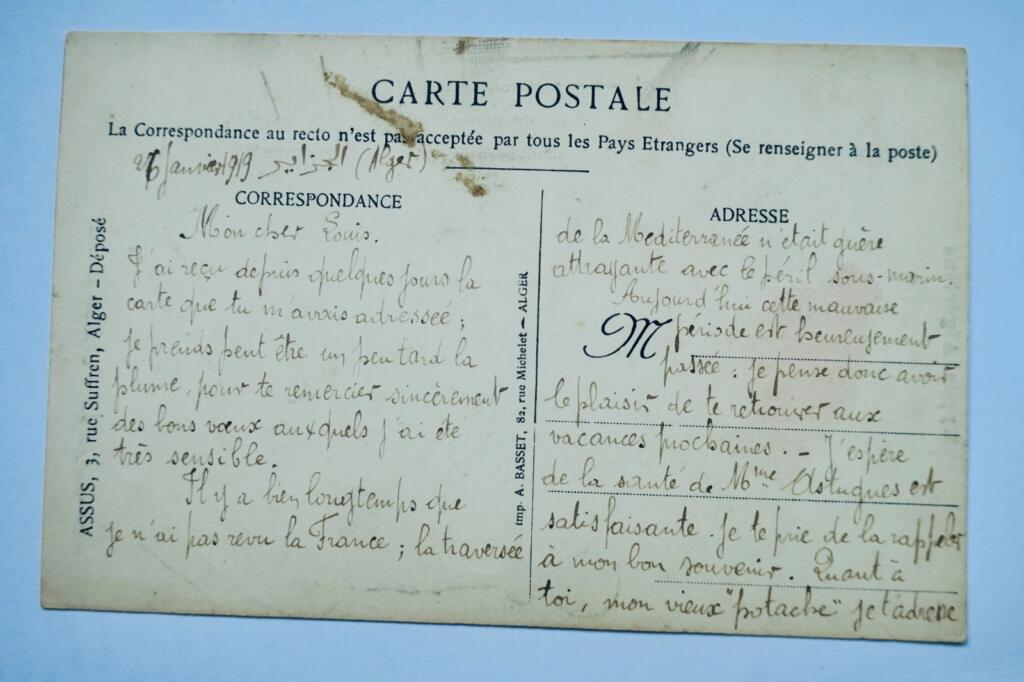 CARTE POSTALE
La Correspondance au recto n'est pas acceptée par tous les Pays Etrangers (Se renseigner à la poste)
26 Janvier 1919 الجزاير (Alger)
CORRESPONDANCE
Mon cher Louis.
J'ai reçu depuis quelques jours la
carte que tu m'avais adressée ;
je prends peut être un peu tard la
plume, pour te remercier sincèrement
des bons vœux auxquels j'ai été
très sensible.
Il y a bien longtemps que
je n'ai pas revu la France ; la traversée
ADRESSE
de la Mediterranée n'était guère
attrayante avec le péril sous-marin.
Aujourd'hui cette mauvaise
M
période est heureusement
passée : je pense donc avoir
le plaisir de te retrouver aux
vacances prochaines. - J'espère
de la santé de Mme Astugues est
satisfaisante. Je te prie de la rappeler
à mon bon souvenir. Quant à
toi, mon vieux "potache" je t'adresse
ASSUS, 3, rue Suffren, Alger - Déposé
Imp. A. BASSET, 82, rue Michelet - ALGER